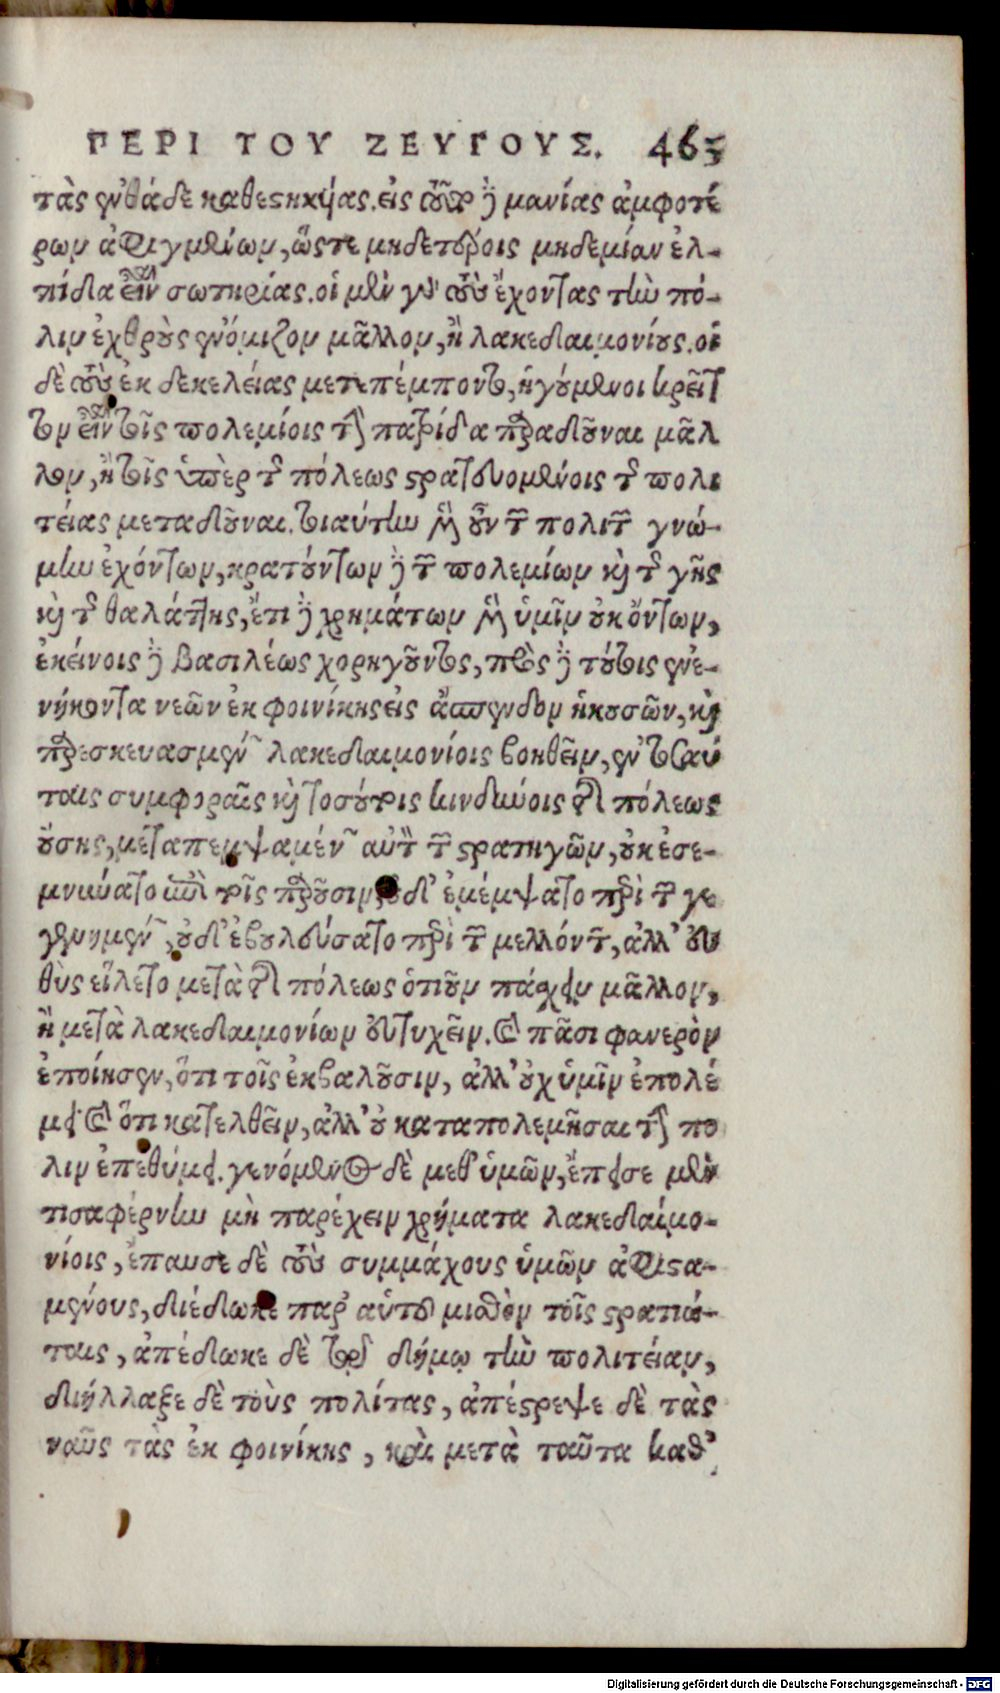 ΠΕΡΙ ΤΟΥ ΖΕΥΓΟΥΣ. 465
τὰς ἐνθάδε καθεστηκυίας. εἰς τοῦτο δὲ μανίας ἀμφοτέ
ρων ἀφιγμένων, ὥστε μηδετέροις μηδεμίαν ἐλ-
πίδα εἶναι σωτηρίας. οἱ μὲν γὰρ τοὺς ἔχοντας τὴν πό-
λιν ἐχθροὺς ἐνόμιζον μᾶλλον, ἢ λακεδαιμονίους. οἱ
δὲ τοὺς ἐκ δεκελείας μετεπέμποντο, ἡγούμενοι κρεῖτ
τον εἶναι τοῖς πολεμίοις τὴν πατρίδα παραδοῦναι μᾶλ
λον, ἢ τοῖς ὑπὲρ τῆς πόλεως στρατευομένοις τῆς πολι
τείας μεταδοῦναι. τοιαύτην μὲν οὖν τῶν πολιτῶν γνώ-
μην ἐχόντων, κρατούντων δὲ τῶν πολεμίων καὶ τῆς γῆς
καὶ τῆς θαλάττης, ἔτι δὲ χρημάτων μὲν ὑμῖν οὐκ ὄντων,
ἐκείνοις δὲ βασιλέως χορηγοῦντος, πρὸς δὲ τούτοις ἐνε-
νήκοντα νεῶν ἐκ φοινίκης εἰς ἄσπενδον ἡκουσῶν, καὶ
παρεσκευασμένων λακεδαιμονίοις βοηθεῖν, ἐν τοσαύ
ταις συμφοραῖς καὶ τοσούτοις κινδύνοις τῆς πόλεως
οὔσης, μεταπεμψαμένων αὐτὸν τῶν στρατηγῶν, οὐκ ἐσε-
μνύνατο ἐπὶ τοῖς παροῦσιν, οὐδ' ἐμέμψατο περὶ τῶν γε
γενημένων, οὐδ' ἐβουλεύσατο περὶ τῶν μελλόντων, ἀλλ' εὐ
θὺς εἵλετο μετὰ τῆς πόλεως ὁτιοῦν πάσχειν μᾶλλον,
ἢ μετὰ λακεδαιμονίων εὐτυχεῖν. καὶ πᾶσι φανερὸν
ἐποίησεν, ὅτι τοῖς ἐκβαλοῦσιν, ἀλλ' οὐχ ὑμῖν ἐπολέ
μει· καὶ ὅτι κατελθεῖν, ἀλλ' οὐ καταπολεμῆσαι τὴν πό
λιν ἐπεθύμει. γενόμενος δὲ μεθ' ὑμῶν, ἔπεισε μὲν
τισαφέρνην μὴ παρέχειν χρήματα λακεδαιμο-
νίοις, ἔπαυσε δὲ τοὺς συμμάχους ὑμῶν ἀφιστα-
μένους, διέδωκε παρ' αὑτοῦ μισθὸν τοῖς στρατιώ-
ταις, ἀπέδωκε δὲ τῷ δήμῳ τὴν πολιτείαν,
διήλλαξε δὲ τοὺς πολίτας, ἀπέστρεψε δὲ τὰς
ναῦς τὰς ἐκ φοινίκης, καὶ μετὰ ταῦτα καθ'
Digitalisierung gefördert durch die Deutsche Forschungsgemeinschaft - DFG